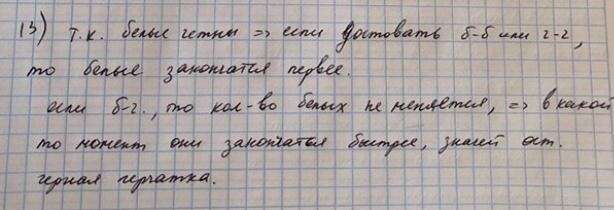 13) т.к. белые четны => если достовать б-б или ч-ч,
то белые закончатся первее.
если б-ч., то кол-во белых не меняется, => в какой
то момент они закончатся быстрее, значит ост.
черная перчатка.